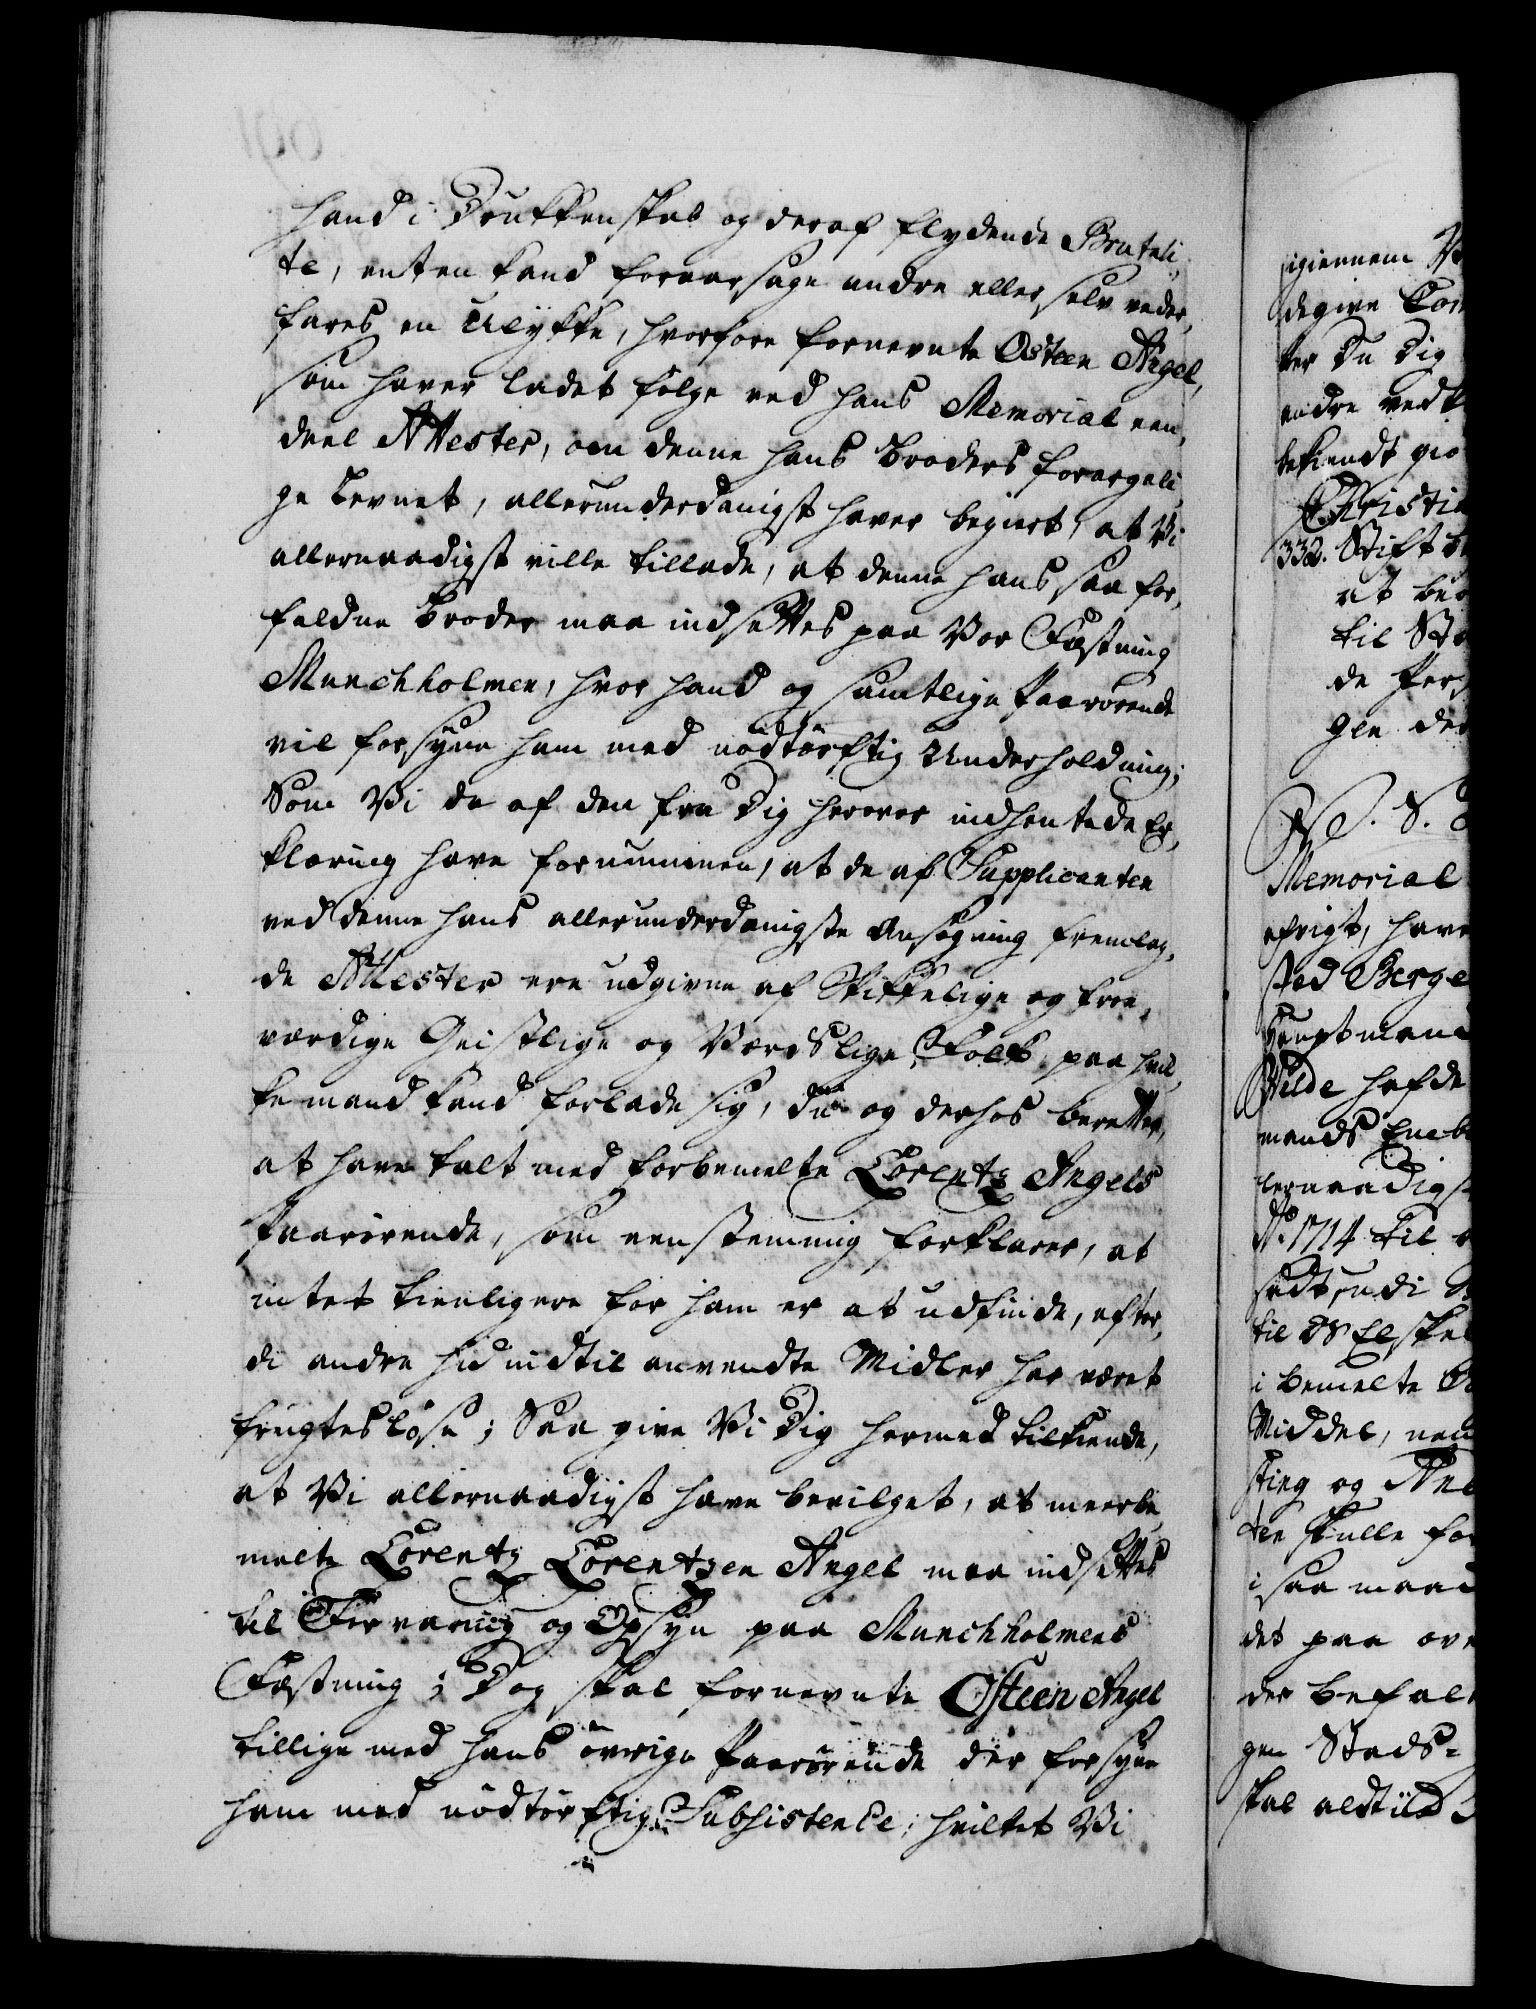 hand i Drukkenskab og deraf flydende Brutali-
te, enten kand foraarsage andre eller selv veder-
fares en Ulykke, hvorfore fornevnte Osteen Angel,
som haver ladet følge ved hans Memorial een
deel Attester, om denne hans Broders forargeli-
ge Levnet, allerunderdanigst haver begiert, at Vi
allernaadigst ville tillade, at denne hans saa for-
faldne Broder maa indsættes paa Vor Fæstning
Munchholmen, hvor hand og samtlige Paarørende
vil forsyne ham med nødtørftig Underholdning;
Som Vi da af den fra Dig herover indhentede Er-
klæring have fornummen, at de af Supplicanten
ved denne hans allerunderdanigste Ansøgning fremlag-
de Attester ere udgivne af Skikkelige og troe-
værdige Geistlige og Verdslige Folk, paa hvil-
ke mand kand forlade sig, du og derhos beretter,
at have talt med forbemelte Lorentz Angels
Paarørende, som eenstemmig forklarer, at
intet tienligere for ham er at udfinde, efter-
di andre hid indtil anvendte Midler har været
frugtesløse; Saa give Vi Dig hermed tilkiende,
at Vi allernaadigst have bevilget, at meerbe-
melte Lorentz Lorentzen Angel maa indsættes
til Forvaring og Opsyn paa Munchholmens
Fæstning; Dog skal fornevnte Osteen Angel
tillige med hans øvrige Paarørende der forsyne
ham med nødtørftig Subsistence; hvilket Vi
igiennem
degive
ver Du Dig
andre
bekiendt gio
Christia
332. Stift
at
til
de
gen der
Memorial
efrigt, have
sted Berge
Hauptmand
Wilde hafde
mands
lernaadigst
A.o 1714 til
sadt, udi
til
i bemelte
Middel,
sting og
ten skulle for
i saa maad
det paa ove
der befal
gen Stads-
skal aldtiid